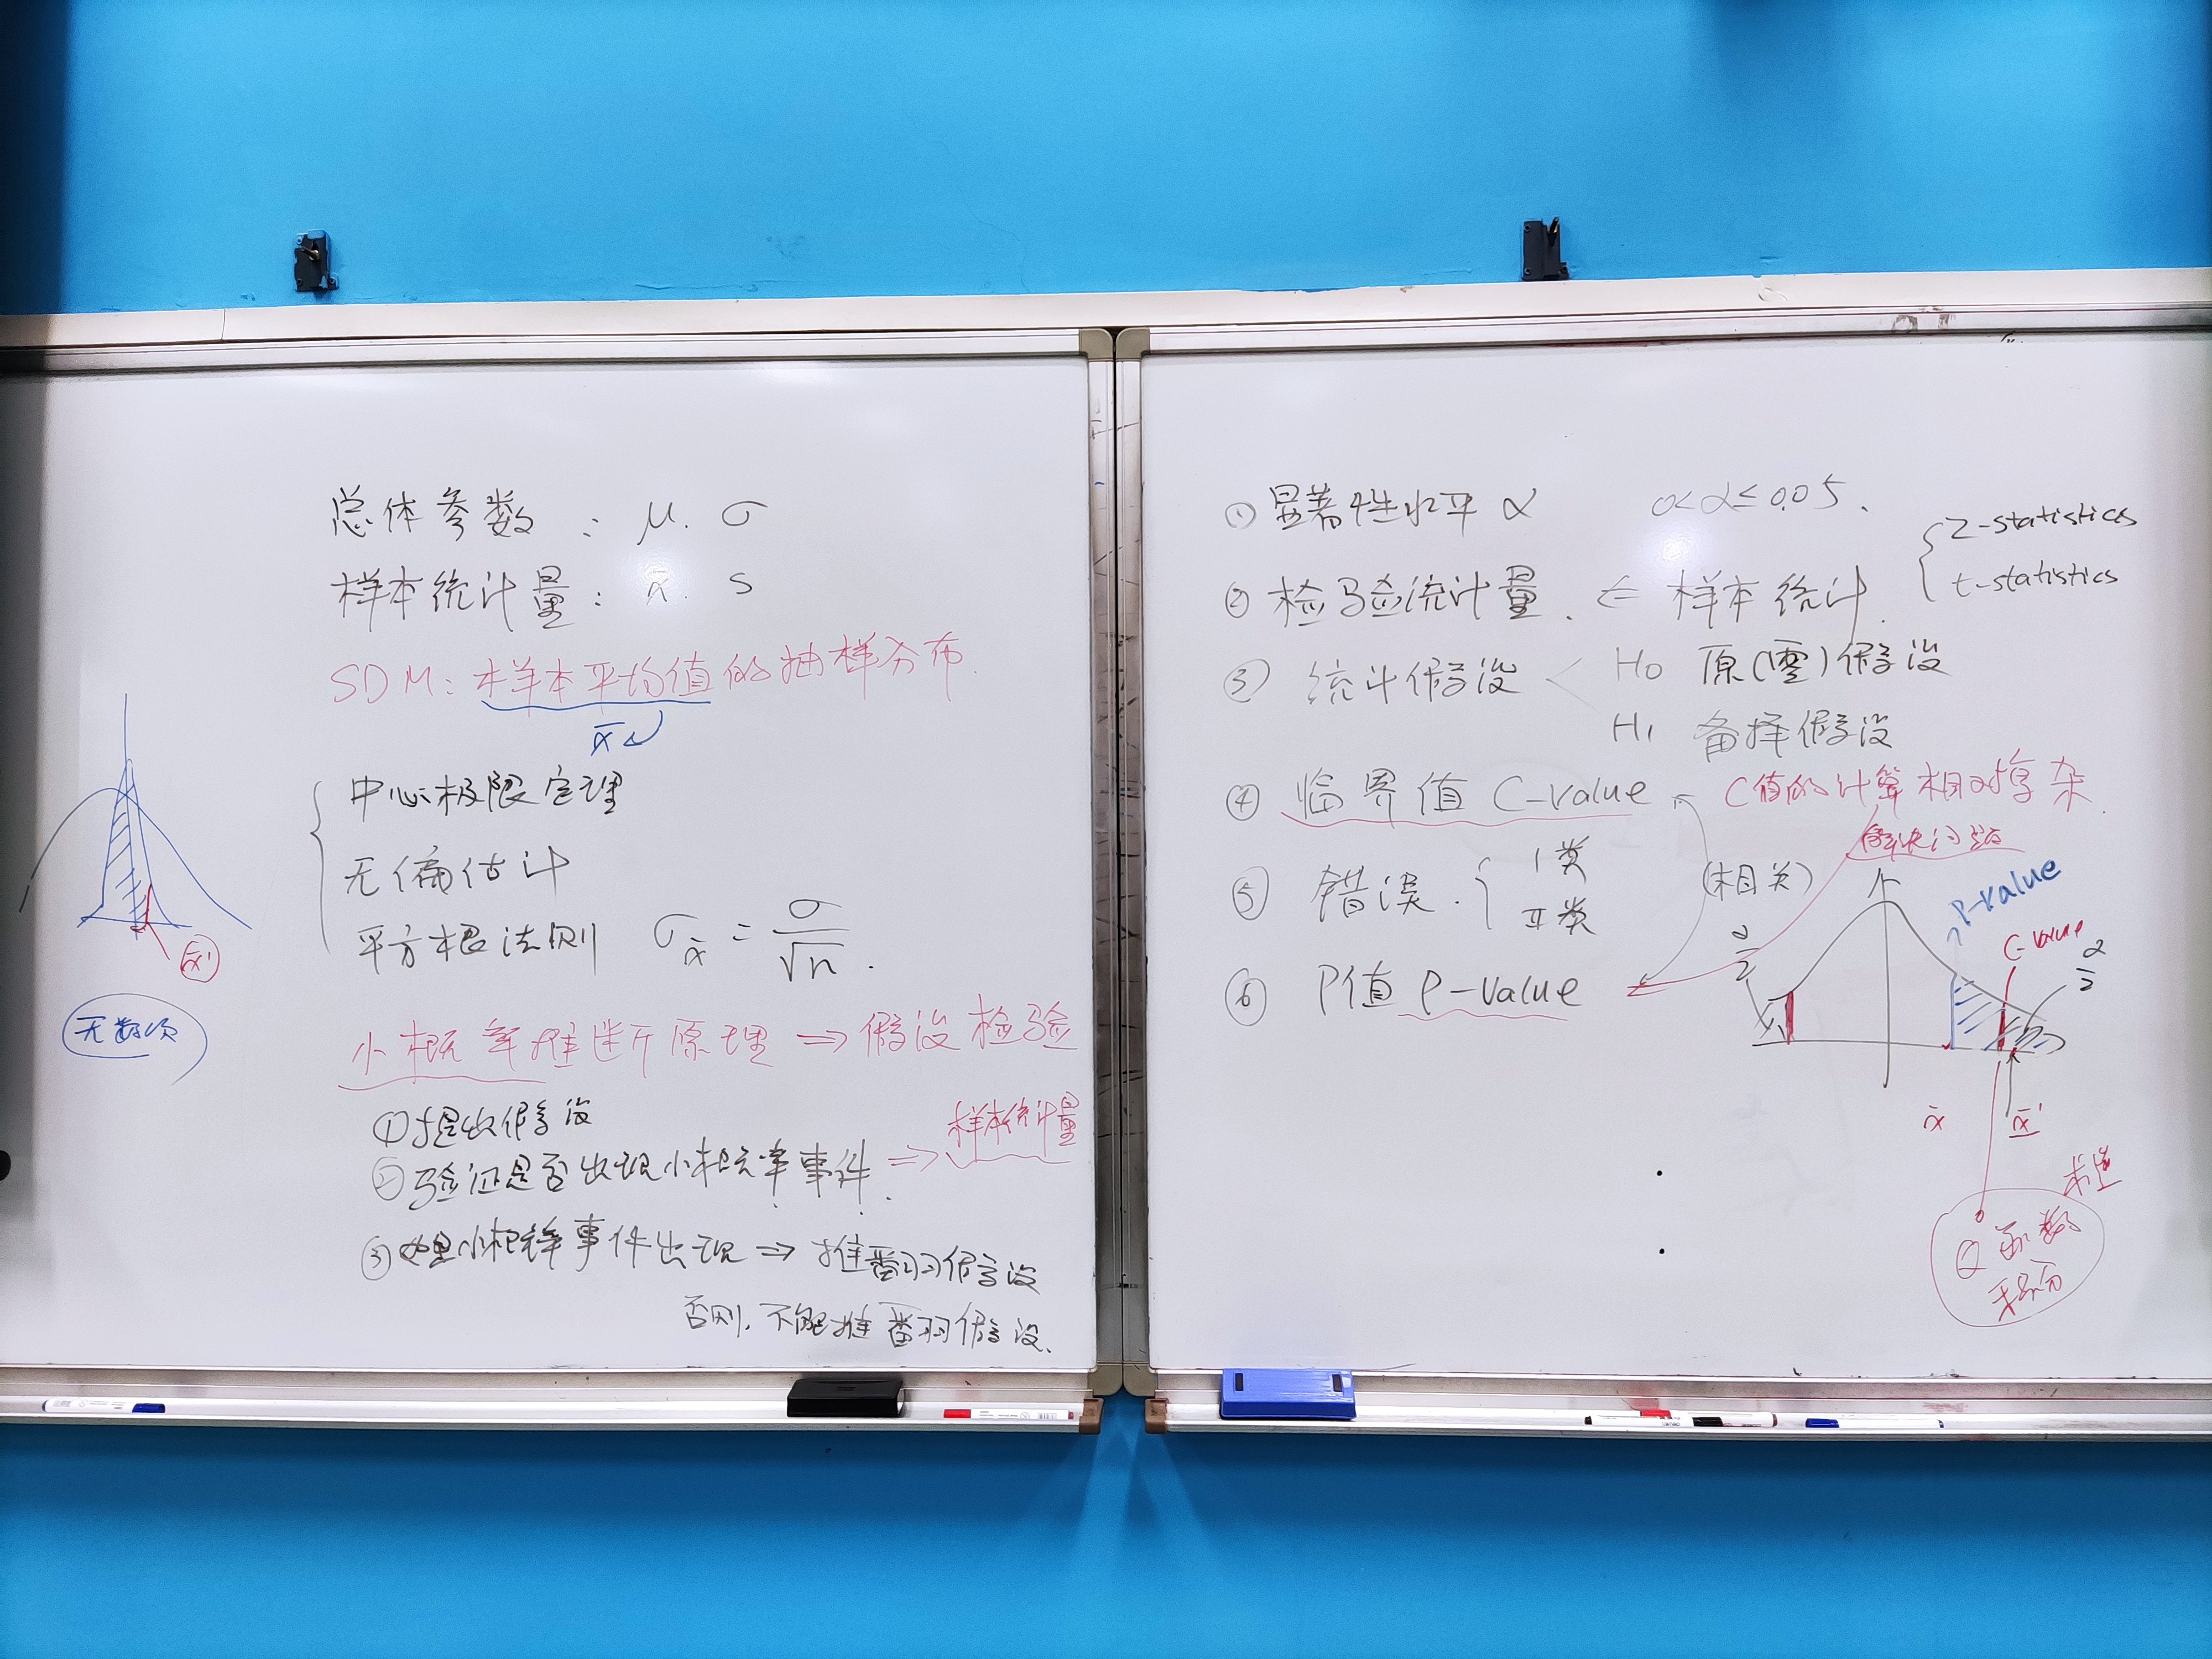 总体参数：μ. σ
样本统计量：x̄. s
SDM：样本平均值的抽样分布.
x̄
中心极限定理
无偏估计
平方根法则 σx̄ = σ/√n.
x̄'
无数次
小概率推断原理 ⇒ 假设检验
①提出假设
②验证是否出现小概率事件. ⇒ 样本统计量
③如果小概率事件出现 ⇒ 推翻假设
否则,不能推翻假设.
①显著性水平 α 0<α≤0.05.
②检验统计量. ⇐ 样本统计. { Z-statistics
t-statistics
③统计假设 < H0 原(零)假设
H1 备择假设
④临界值 C-value C值的计算相对复杂.
解决问题
⑤错误. { I类
II类
(相关)
⑥P值 P-value
P-value
C-value
α/2
α/2
x̄
x̄'
求法
函数
积分